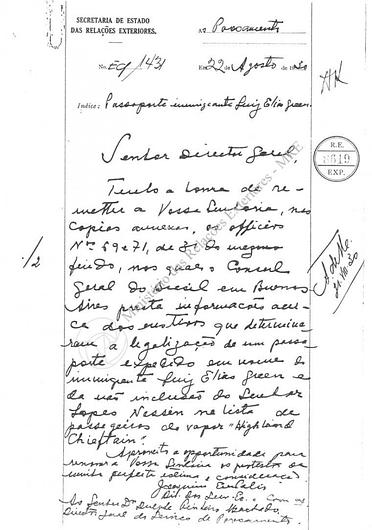 SECRETARIA DE ESTADO
DAS RELAÇÕES EXTERIORES.
Ao Povoamento
No. EC/1431
Em 22 de Agosto de 1930
Indice: Passaporte immigrante Luiz Elias Green.
R.E.
8619
EXP.
Senhor Director Geral,
1/2
Tenho a honra de re-
metter a Vossa Senhoria, nas
copias annexas, os officios
Nos. 69 e 71, de 31 do mez
findo, nos quaes o Consul
Geral do Brasil em Buenos
Aires presta informações acer-
ca dos motivos que determina-
ram a legalização de um passa-
porte expedido em nome do
immigrante Luiz Elias Green e
da não inclusão do Senhor
Lopes Nessim na lista de
passageiros do vapor "Highland
Chieftain".
Aproveito a opportunidade para
renovar a Vossa Senhoria os protestos da
minha perfeita estima e consideração
Joaquim Eulalio
Ao Senhor Dr. Dulphe Pinheiro Machado,
Director Geral do Serviço de Povoamento.
Ministério das Relações Exteriores - MRE